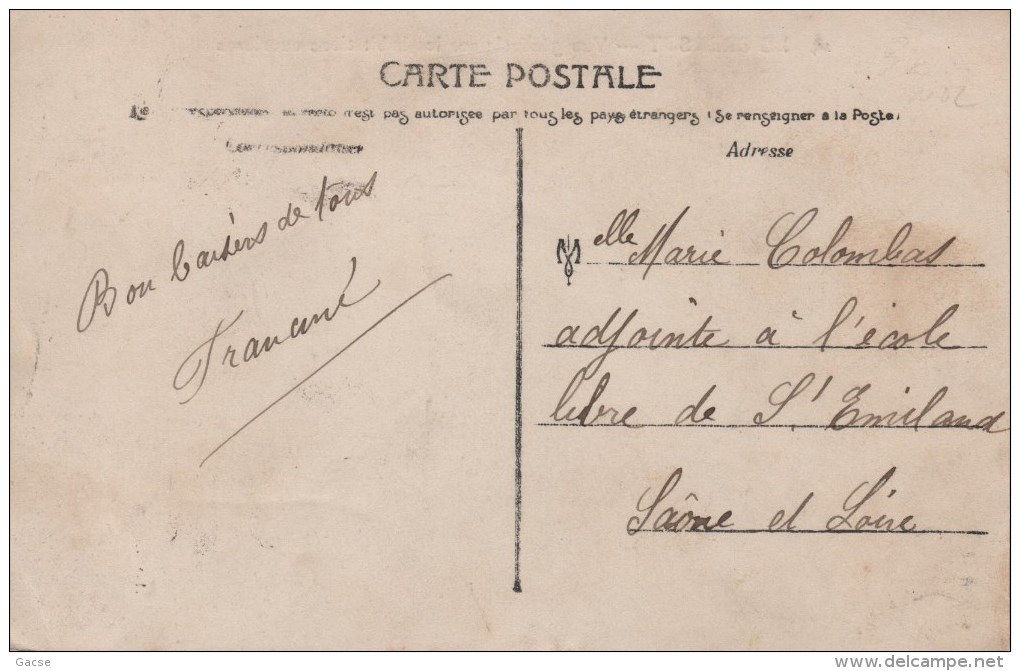 CARTE POSTALE
n'est pas autorisée par tous les pays étrangers (Se renseigner a la Poste)
Correspondance
Adresse
Bon baisers de tous
Francine
Melle Marie Colombas
adjointe à l'école
libre de St Emiland
Saône et Loire
Gacse
www.delcampe.net